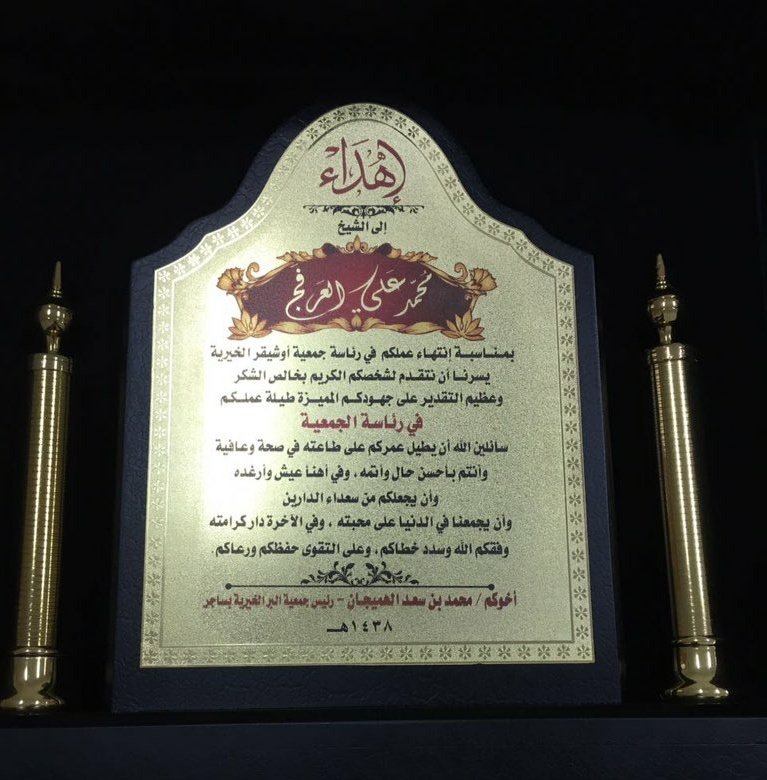 إهْدَاء
إلى الشيخ
محمّد علي العرفج
بمناسبة إنتهاء عملكم في رئاسة جمعية أوشيقر الخيرية
يسرنا أن نتقدم لشخصكم الكريم بخالص الشكر
وعظيم التقدير على جهودكم المميزة طيلة عملكم
في رئاسة الجمعية
سائلين الله أن يطيل عمركم على طاعته في صحة وعافية
وأنتم بأحسن حال وأتمه ، وفي أهنأ عيش وأرغده
وأن يجعلكم من سعداء الدارين
وأن يجمعنا في الدنيا على محبته ، وفي الآخرة دار كرامته
وفقكم الله وسدد خطاكم ، وعلى التقوى حفظكم ورعاكم
أخوكم / محمد بن سعد الهميجان - رئيس جمعية البر الخيرية بساجر
١٤٣٨هـ